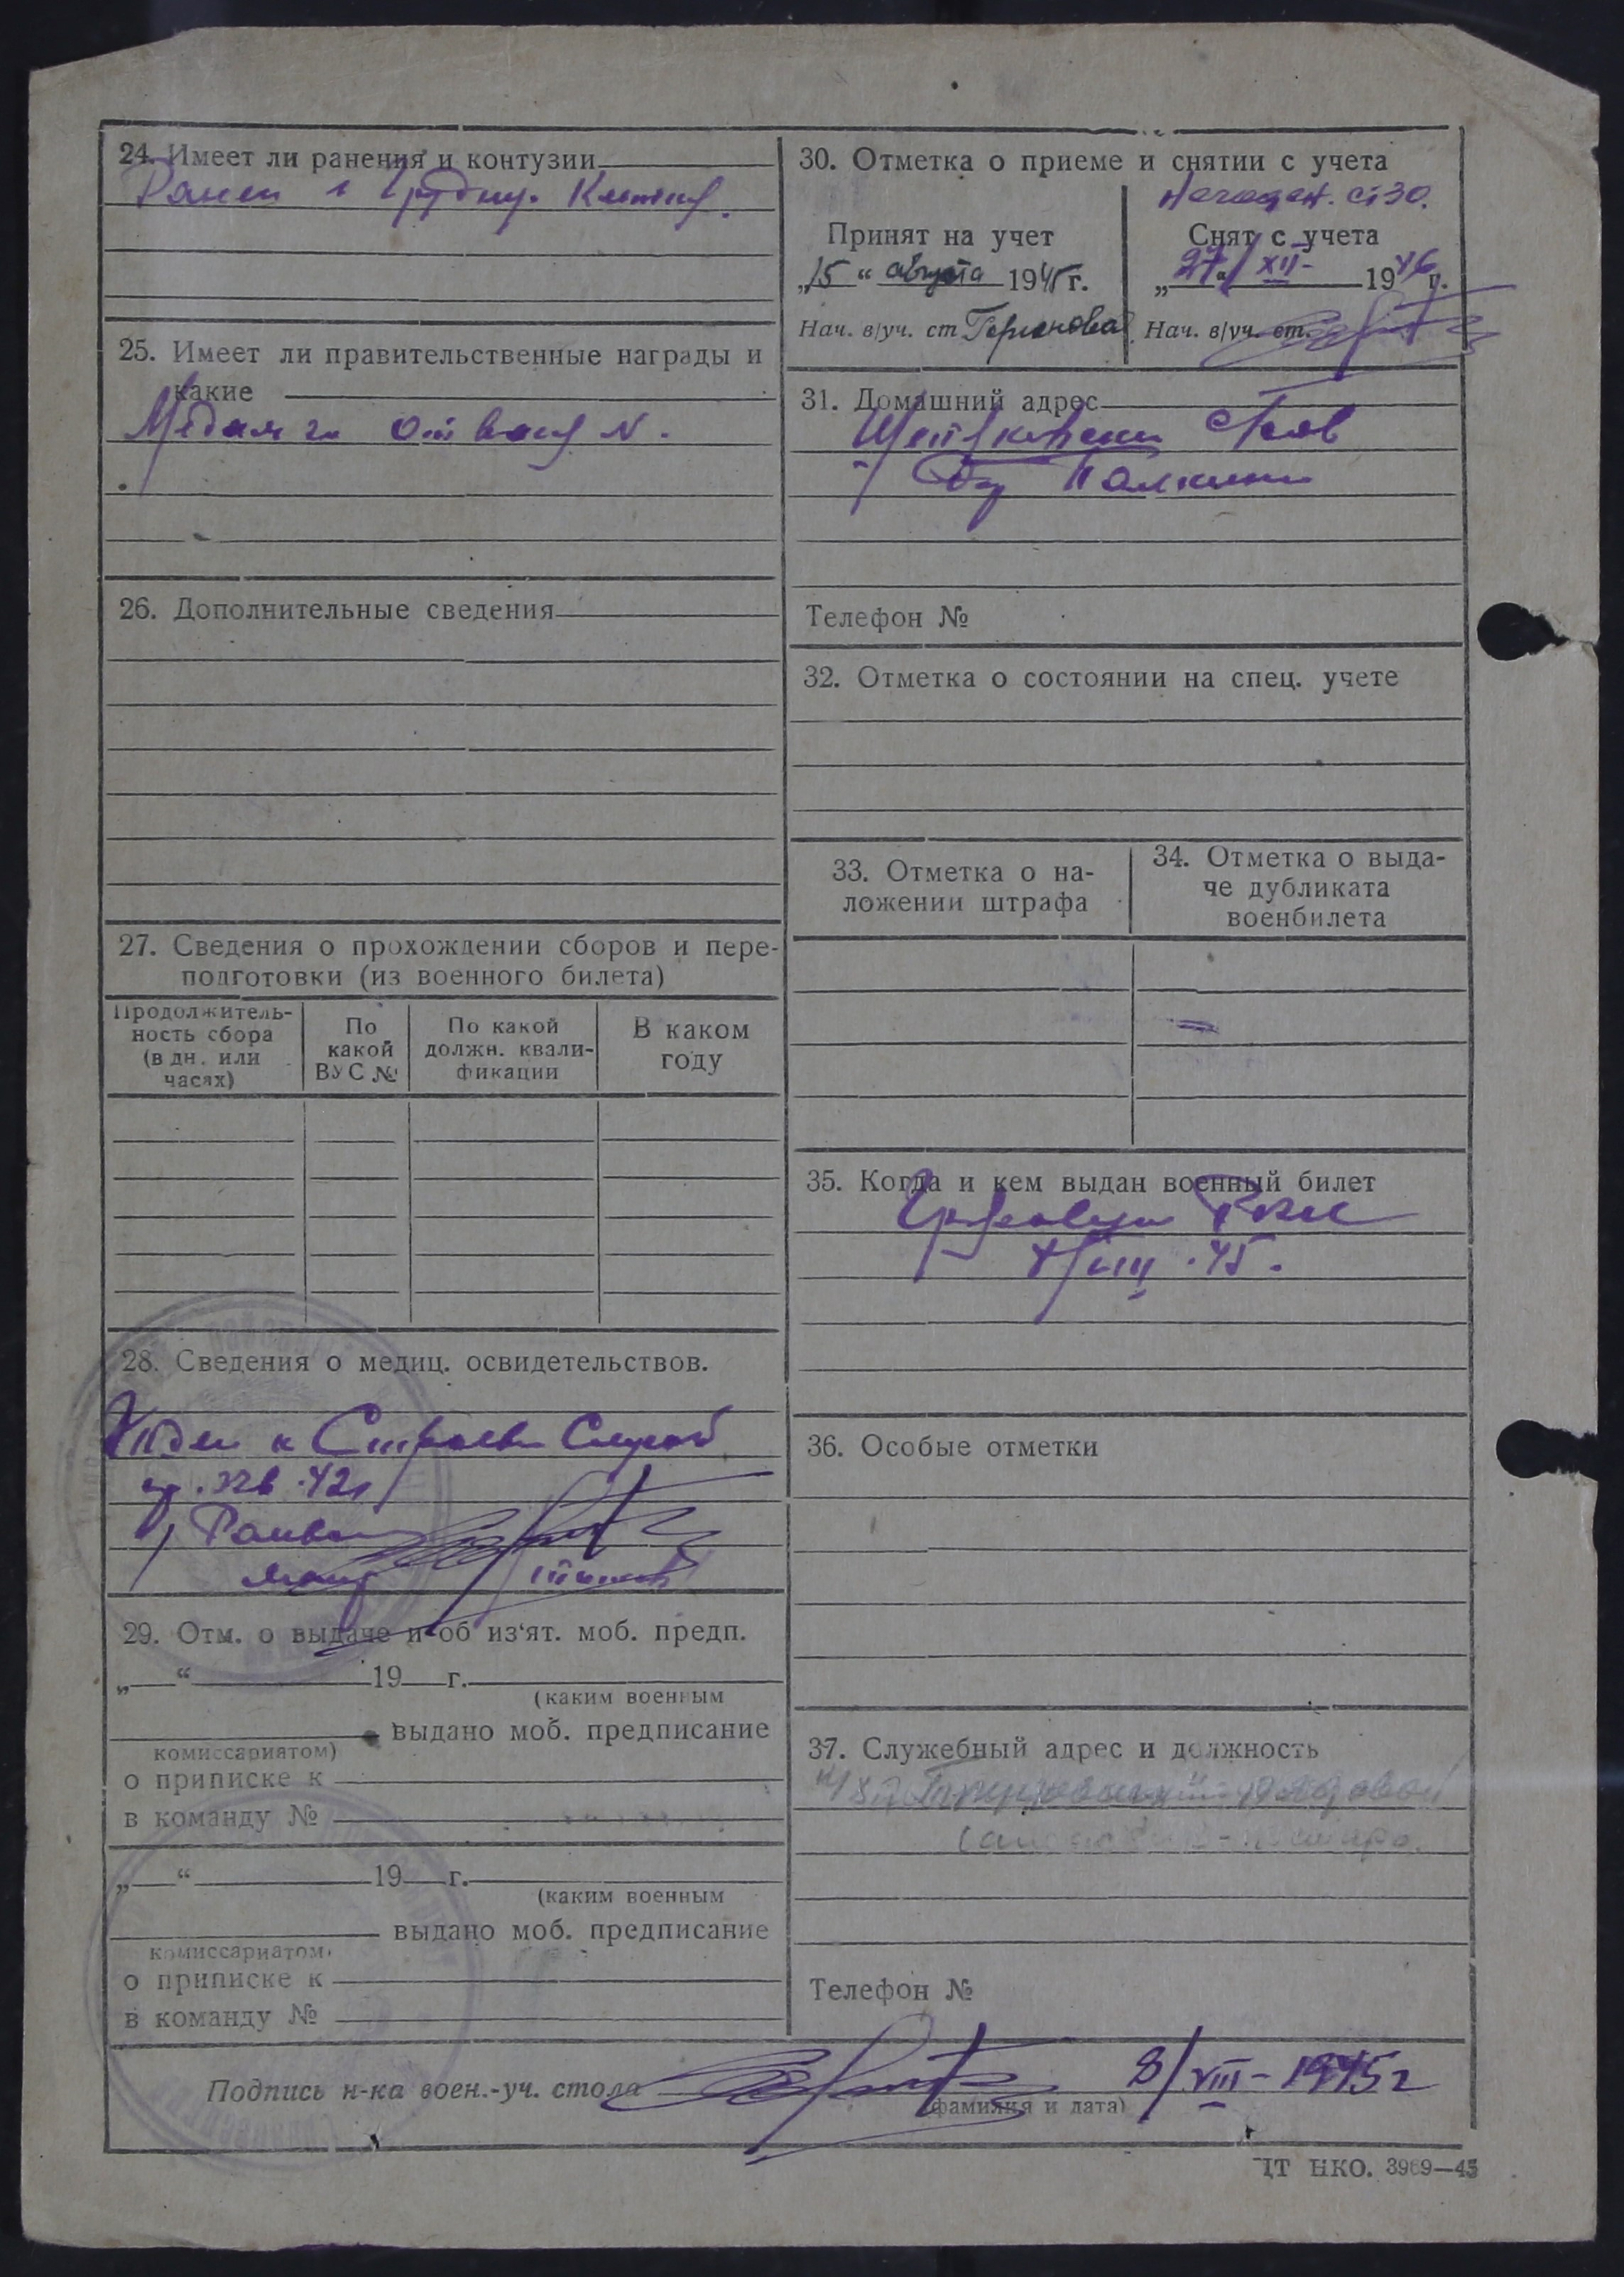 24. Имеет ли ранения и контузии
Ранен в грудную. Клетку.
25. Имеет ли правительственные награды и
какие
Медаль за Отвагу №.
26. Дополнительные сведения
27. Сведения о прохождении сборов и пере-
подготовки (из военного билета)
Продолжитель-
ность сбора
(в дн. или
часях)
По
какой
ВУС №
По какой
должн. квали-
фикации
В каком
году
28. Сведения о медиц. освидетельствов.
Годен к Строевой Службе
29. Отм. о выдаче и об из‘ят. моб. предп.
„ “ 19 г.
(каким военным
выдано моб. предписание
комиссариатом)
о приписке к
в команду №
„ “ 19 г.
(каким военным
выдано моб. предписание
комиссариатом)
о приписке к
в команду №
30. Отметка о приеме и снятии с учета
ст 30.
Принят на учет
„15“ августа 1945 г.
Нач. в/уч. ст
Снят с учета
„27“ XII- 1946 г.
Нач. в/уч. ст.
31. Домашний адрес
Телефон №
32. Отметка о состоянии на спец. учете
33. Отметка о на-
ложении штрафа
34. Отметка о выда-
че дубликата
военбилета
35. Когда и кем выдан военный билет
РВК
8/VIII.45.
36. Особые отметки
37. Служебный адрес и должность
Телефон №
Подпись н-ка воен.-уч. стола 8/VIII-1945 г
(фамилия и дата)
ЦТ НКО. 3969—45